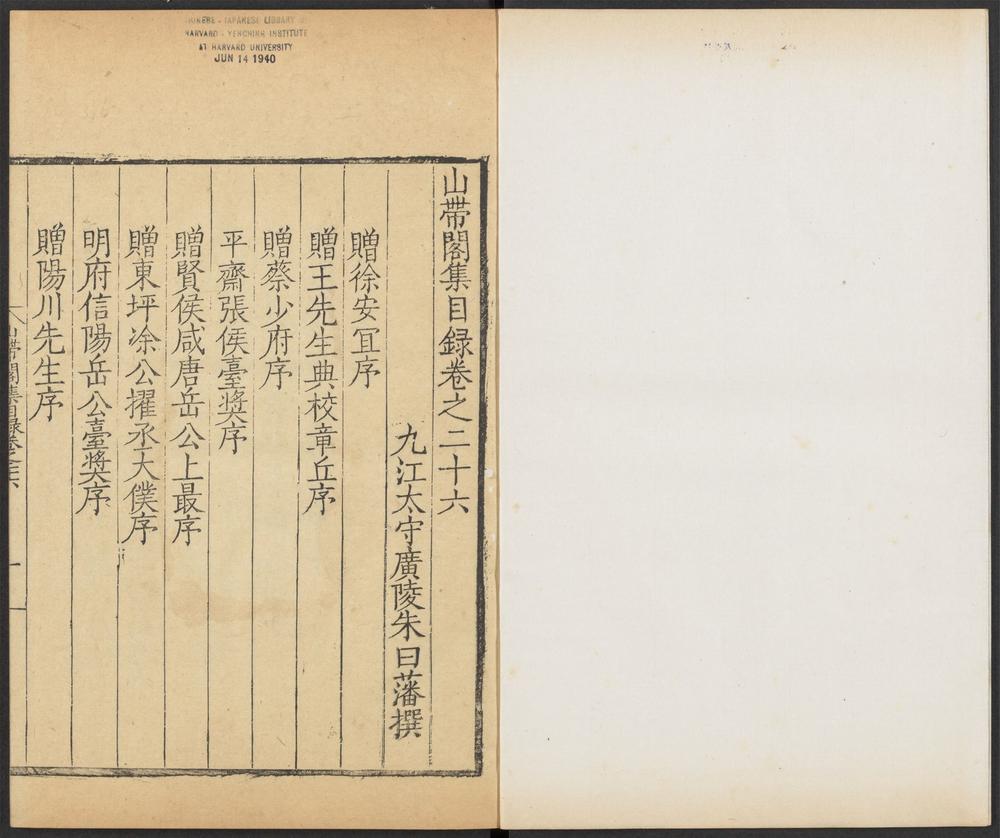 CHINESE - JAPANESE LIBRARY
HARVARD - YENCHING INSTITUTE
AT HARVARD UNIVERSITY
JUN 14 1940
山帶閣集目録卷之二十六
九江太守廣陵朱曰藩撰
贈徐安冝序
贈王先生典校章丘序
贈蔡少府序
平齋張侯臺奬序
贈賢侯咸唐岳公上最序
贈東坪凃公擢丞大僕序
明府信陽岳公臺奬序
贈陽川先生序
山帶閣集目録卷之二十六
一